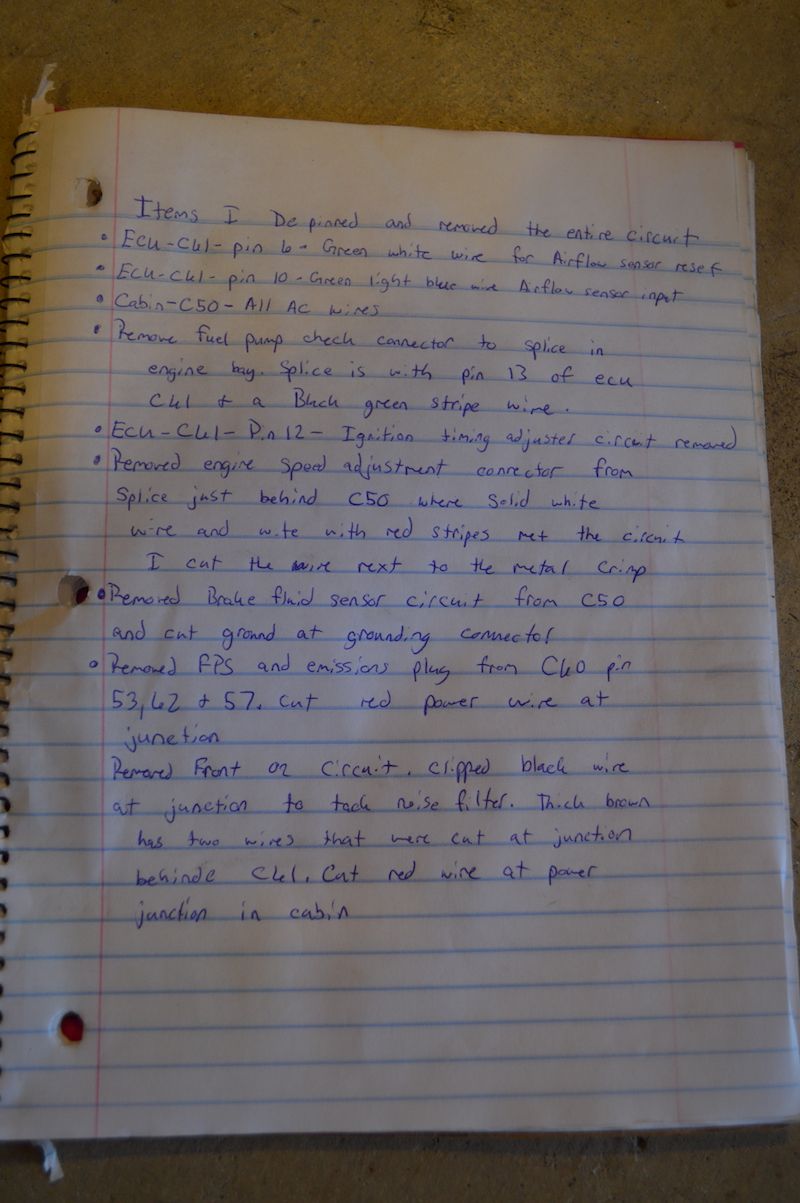 Items I Depinned and removed the entire circuit
• ECU-C61-pin 6- Green white wire for Airflow sensor reset
• ECU-C61-pin 10-Green light blue wire Airflow sensor input
• Cabin-C50-All AC wires
• Remove fuel pump check connector to splice in
engine bay. Splice is with pin 13 of ecu
C61 + a Black green stripe wire.
• ECU-C61-Pin 12- Ignition timing adjuster circuit removed
• Removed engine speed adjustment connector from
Splice just behind C50 where Solid white
wire and wite with red stripes met the circuit
I cut the wire next to the metal crimp
• Removed Brake fluid sensor circuit from C50
and cut ground at grounding connector
• Removed FPS and emissions plug from C60 pin
53,62 + 57. Cut red power wire at
junction
Removed Front O2 Circuit. clipped black wire
at junction to tach noise filter. Thick brown
has two wires that were cut at junction
behinde C61. Cut red wire at power
junction in cabin